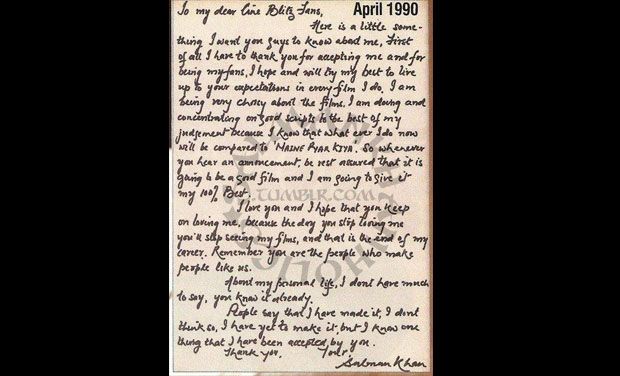 April 1990
To my dear Cine Blitz Fans,
Here is a little some-
thing I want you guys to know about me, First
of all I have to thank you for accepting me and for
being my fans, I hope and will try my best to live
up to your expectations in every film I do. I am
being very choosy about the films. I am doing and
concentrating on good scripts to the best of my
judgement because I know that what ever I do now
will be compared to 'MAINE PYAR KIYA. So whenever
you hear an announcement, be rest assured that it is
going to be a good film and I am going to give it
my 100% Best.
TUMBLR.COM
I love you and I hope that you keep
on loving me, because the day you stop loving me
you'll stop seeing my films, and that is the end of my
career. Remember you are the people who make
people like us.
About my personal life, I dont have much
to say, you know it already.
People say that I have made it, I dont
think so, I have yet to make it, but I know one
thing that I have been accepted by you.
Thank you.
Your
Salman Khan